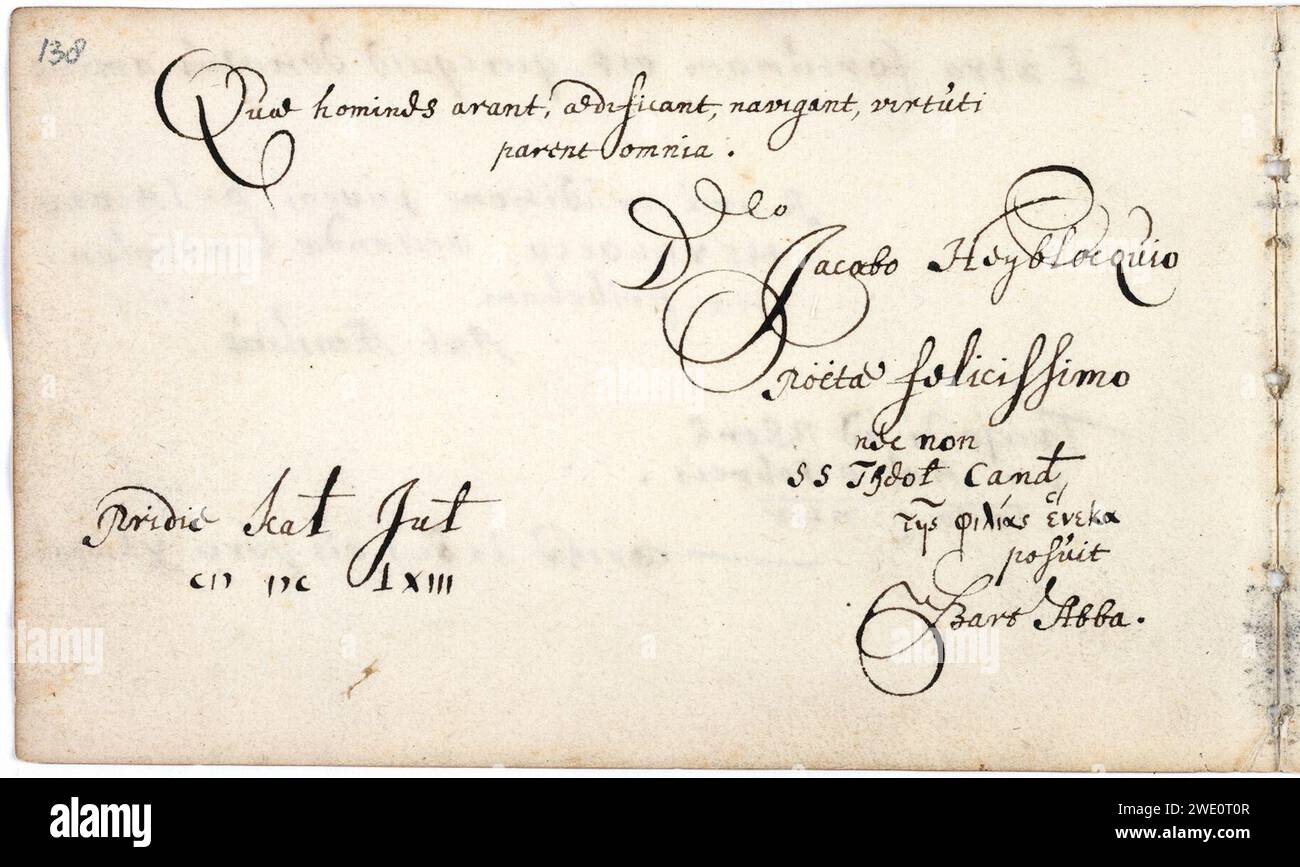 138
Quae homines arant, aedificant, navigant, virtuti
parent omnia.
Dno
Jacobo Heyblocquio
Poëtae felicissimo
nec non
SS Theol. Cand.
τῆς φιλίας ἕνεκα
posuit
Bart Abba.
Pridie Kal Jul
CIↃ IↃC LXIII
alamy
alamy
Image ID: 2WE0T0R
www.alamy.com